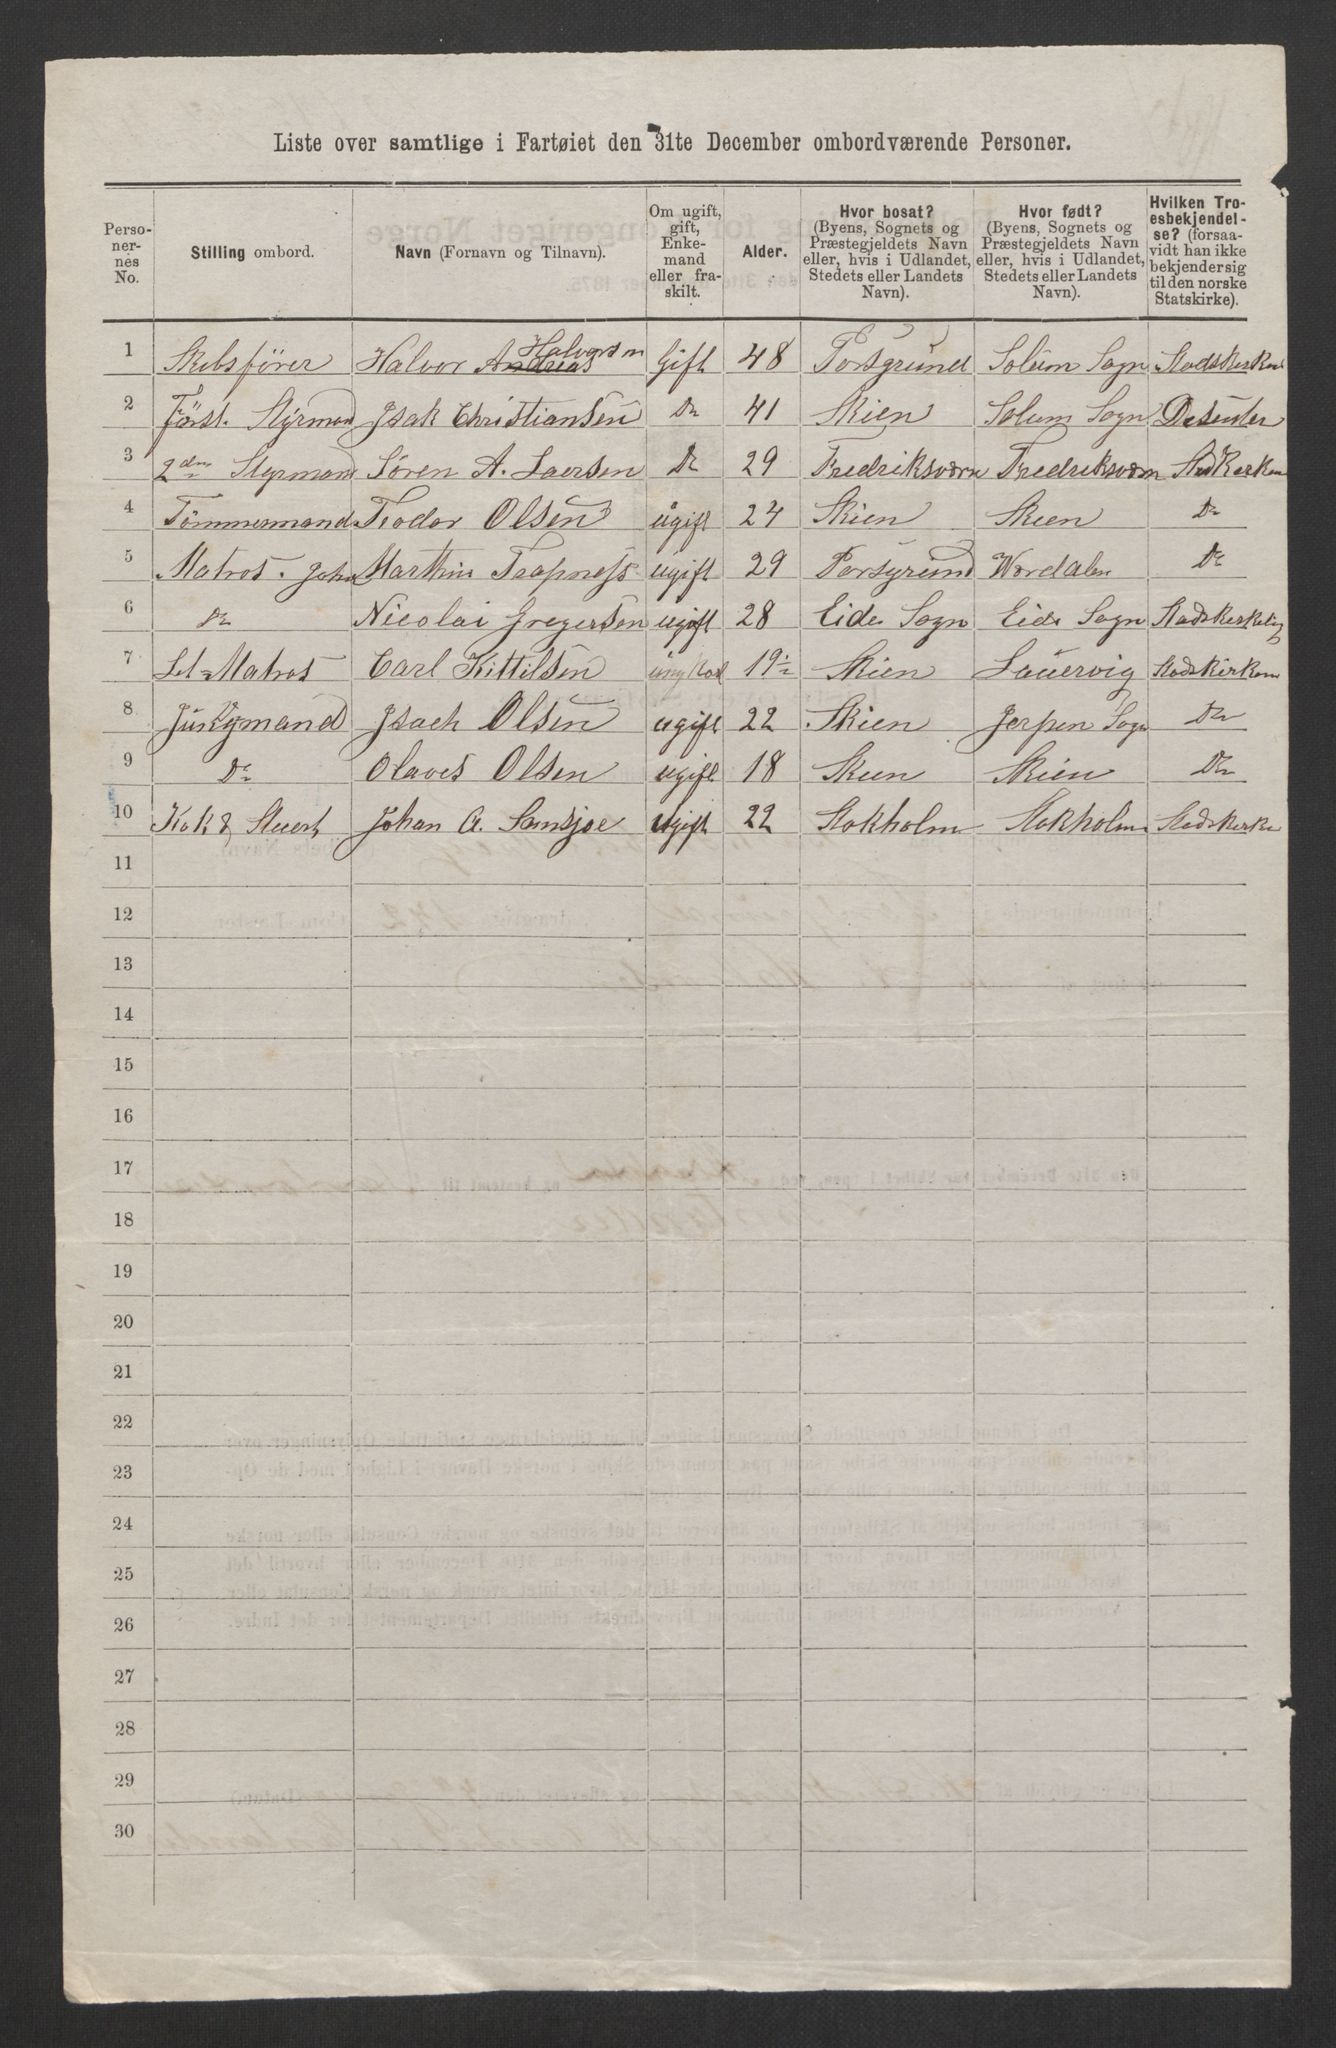 Liste over samtlige i Fartøiet den 31te December ombordværende Personer.
Perso-
ner-
nes
No.
Stilling ombord.
Navn (Fornavn og Tilnavn).
Om ugift,
gift,
Enke-
mand
eller fra-
skilt.
Alder.
Hvor bosat?
(Byens, Sognets og
Præstegjeldets Navn
eller, hvis i Udlandet,
Stedets eller Landets
Navn).
Hvor født?
(Byens, Sognets og
Præstegjeldets Navn
eller, hvis i Udlandet,
Stedets eller Landets
Navn).
Hvilken Tro-
esbekjendel-
se? (forsaa-
vidt han ikke
bekjender sig
til den norske
Statskirke).
1 Skibsfører Halvor Andreas Halvorsen Gift 48 Porsgrund Solum Sogn Stadskerken
2 Först. Styrmand Isak Christiansen Do 41 Skien Solum Sogn Desenter
3 2den Styrmand Søren A. Laersen Do 29 Fredriksværn Fredriksværn
4 Tömmermand Teodor Olsen ugift 24 Skien Skien Do
5 Matros. John Marthin ugift 29 Porsgrund Wordalen Do
6 Do Nicolai Gregersen ugift 28 Eide Sogn Eide Sogn
7 Let Matros Carl Kittilsen 19½ Skien Lauervig Stadskirken
8 Jungmand Isach Olsen ugift 22 Skien Jerpen Sogn Do
9 Do Olaves Olsen ugift 18 Skien Skien Do
10 Kok & Stuert Johan A. ugift 22 Stokholm Stokholm Stadskerke
11
12
13
14
15
16
17
18
19
20
21
22
23
24
25
26
27
28
29
30